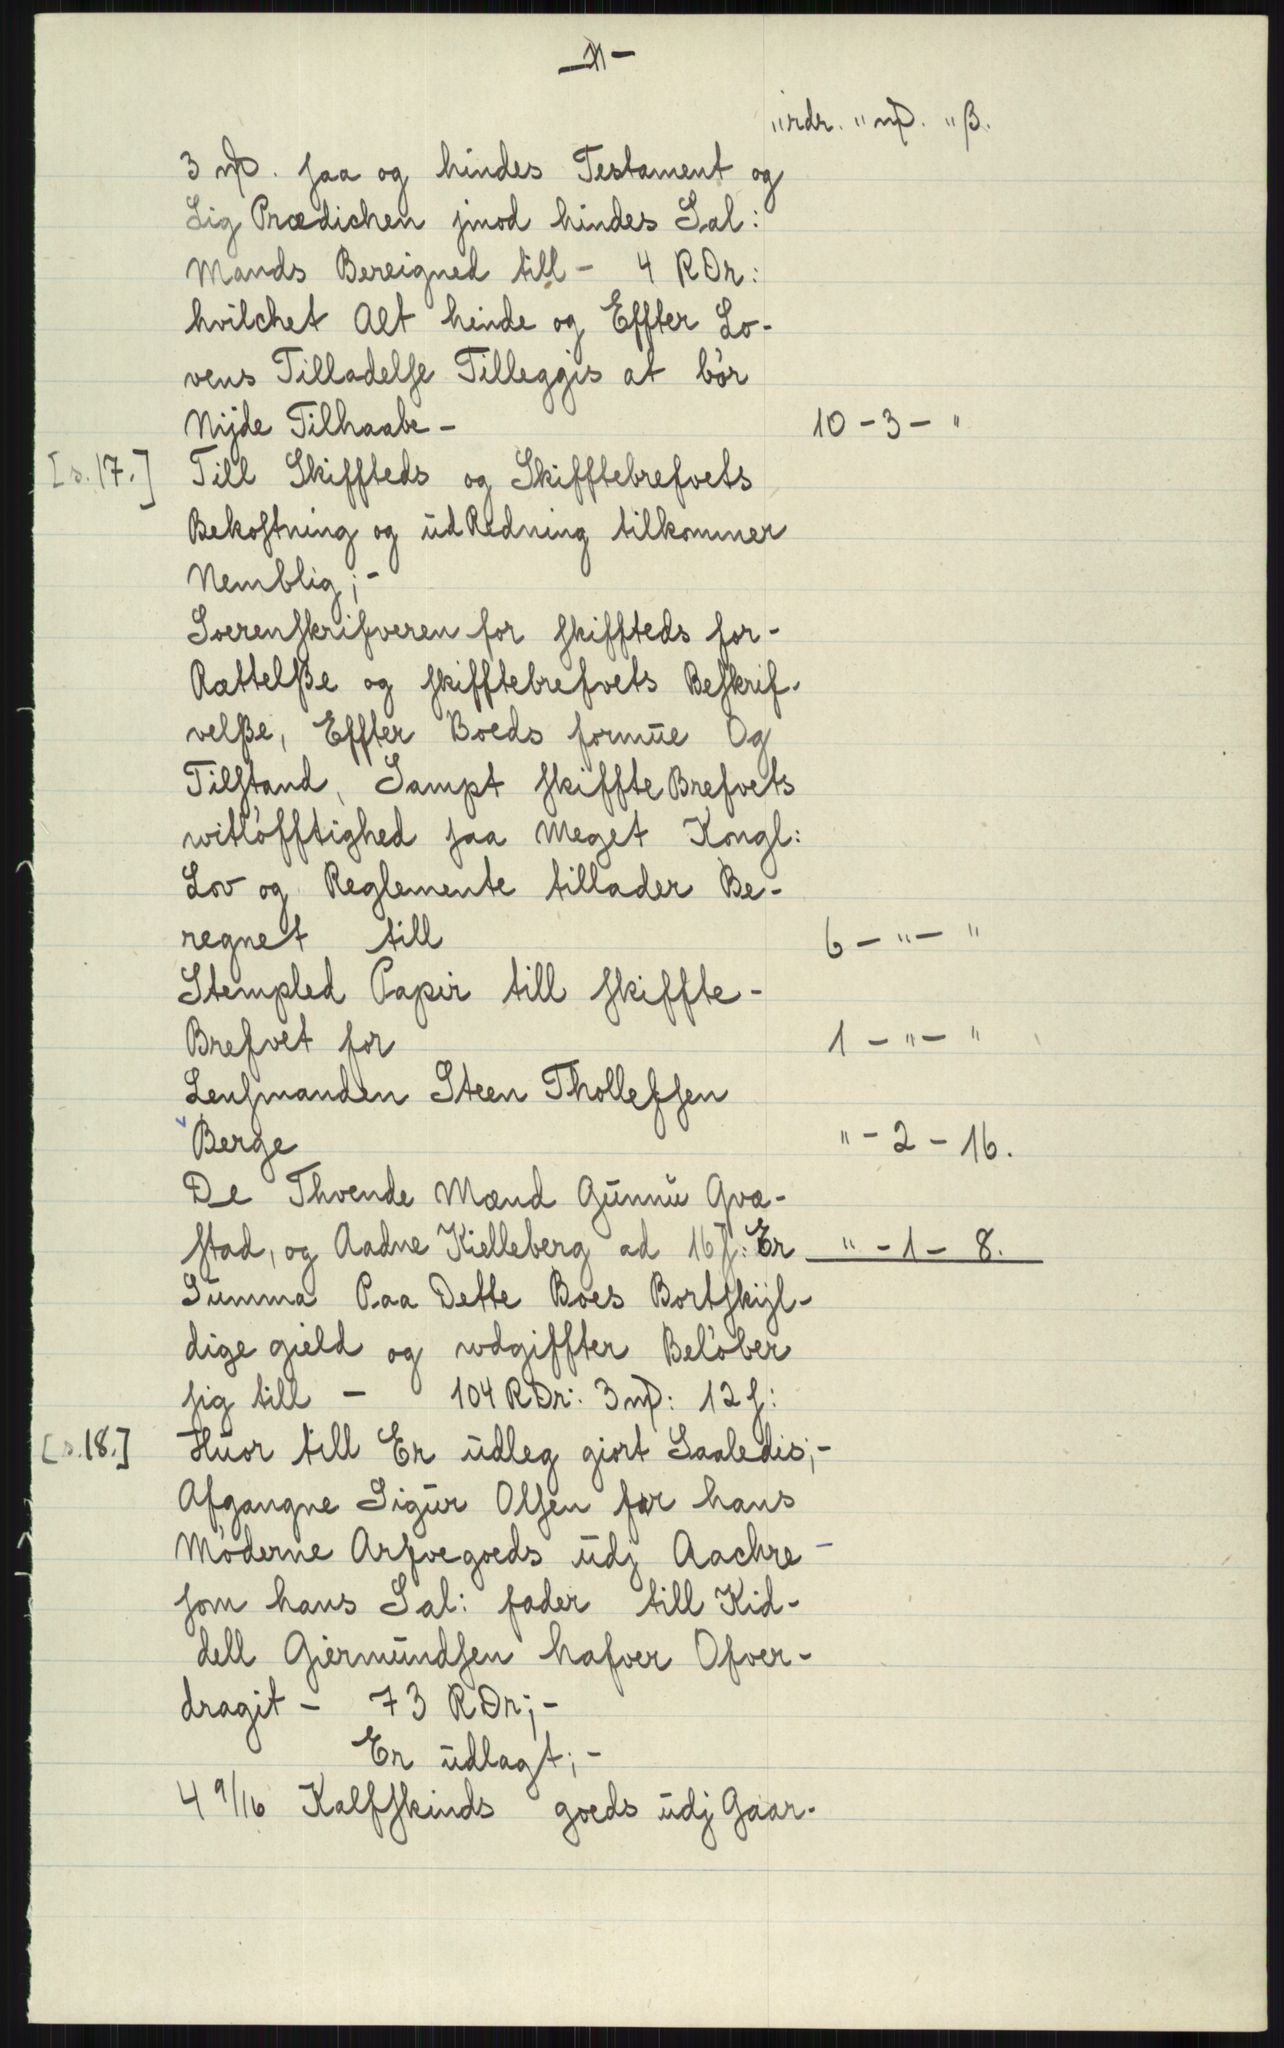 — 11 —
"rdr. " m₰. " β.
3 m₰. saa og hindes Testament og
Lig Prædichen jmod hindes Sal:
Mands Bereigned till — 4 RDr:
hvilchet Alt hinde og Effter Lo-
vens Tilladelse Tilleggis at bør
Nijde Tilhaabe — 10 – 3 – "
[s. 17.] Till Skiffteds og Skifftebrefvets
Bekostning og üdRedning tilkommer
Nemblig; -
Soerenskrifveren for skiffteds for-
Rættelβe og skifftebrefvets Beskrif-
velβe, Effter Boeds formüe Og
Tilstand, Sampt skiffteBrefvets
witløfftighed saa meget Kongl:
Lov og Reglemente tillader Be-
regnet till 6 – " – "
Stempled Papir till skiffte-
Brefvet for 1 – " – "
Lensmanden Steen Thollefsen
Berge " – 2 – 16.
De Thvende Mænd Günnü Qva-
stad, og Aadne Kielleberg ad 16 s: Er " – 1 – 8.
Summa Paa Dette Boes Bortskijl-
dige gield og wdgiffter Beløber
sig till — 104 RDr: 3 m₰: 12 s:
[s. 18.] Hüor till Er üdleg giort Saaledis; -
Afgangne Sigür Olsen for hans
Møderne Arfvegoeds üdj Aachre
som hans Sal: fader till Kid-
dell Giermündsen hafver Ofver-
dragit — 73 RDr; -
Er üdlagt; -
4 9/16 Kalfskinds goeds üdj Gaar-